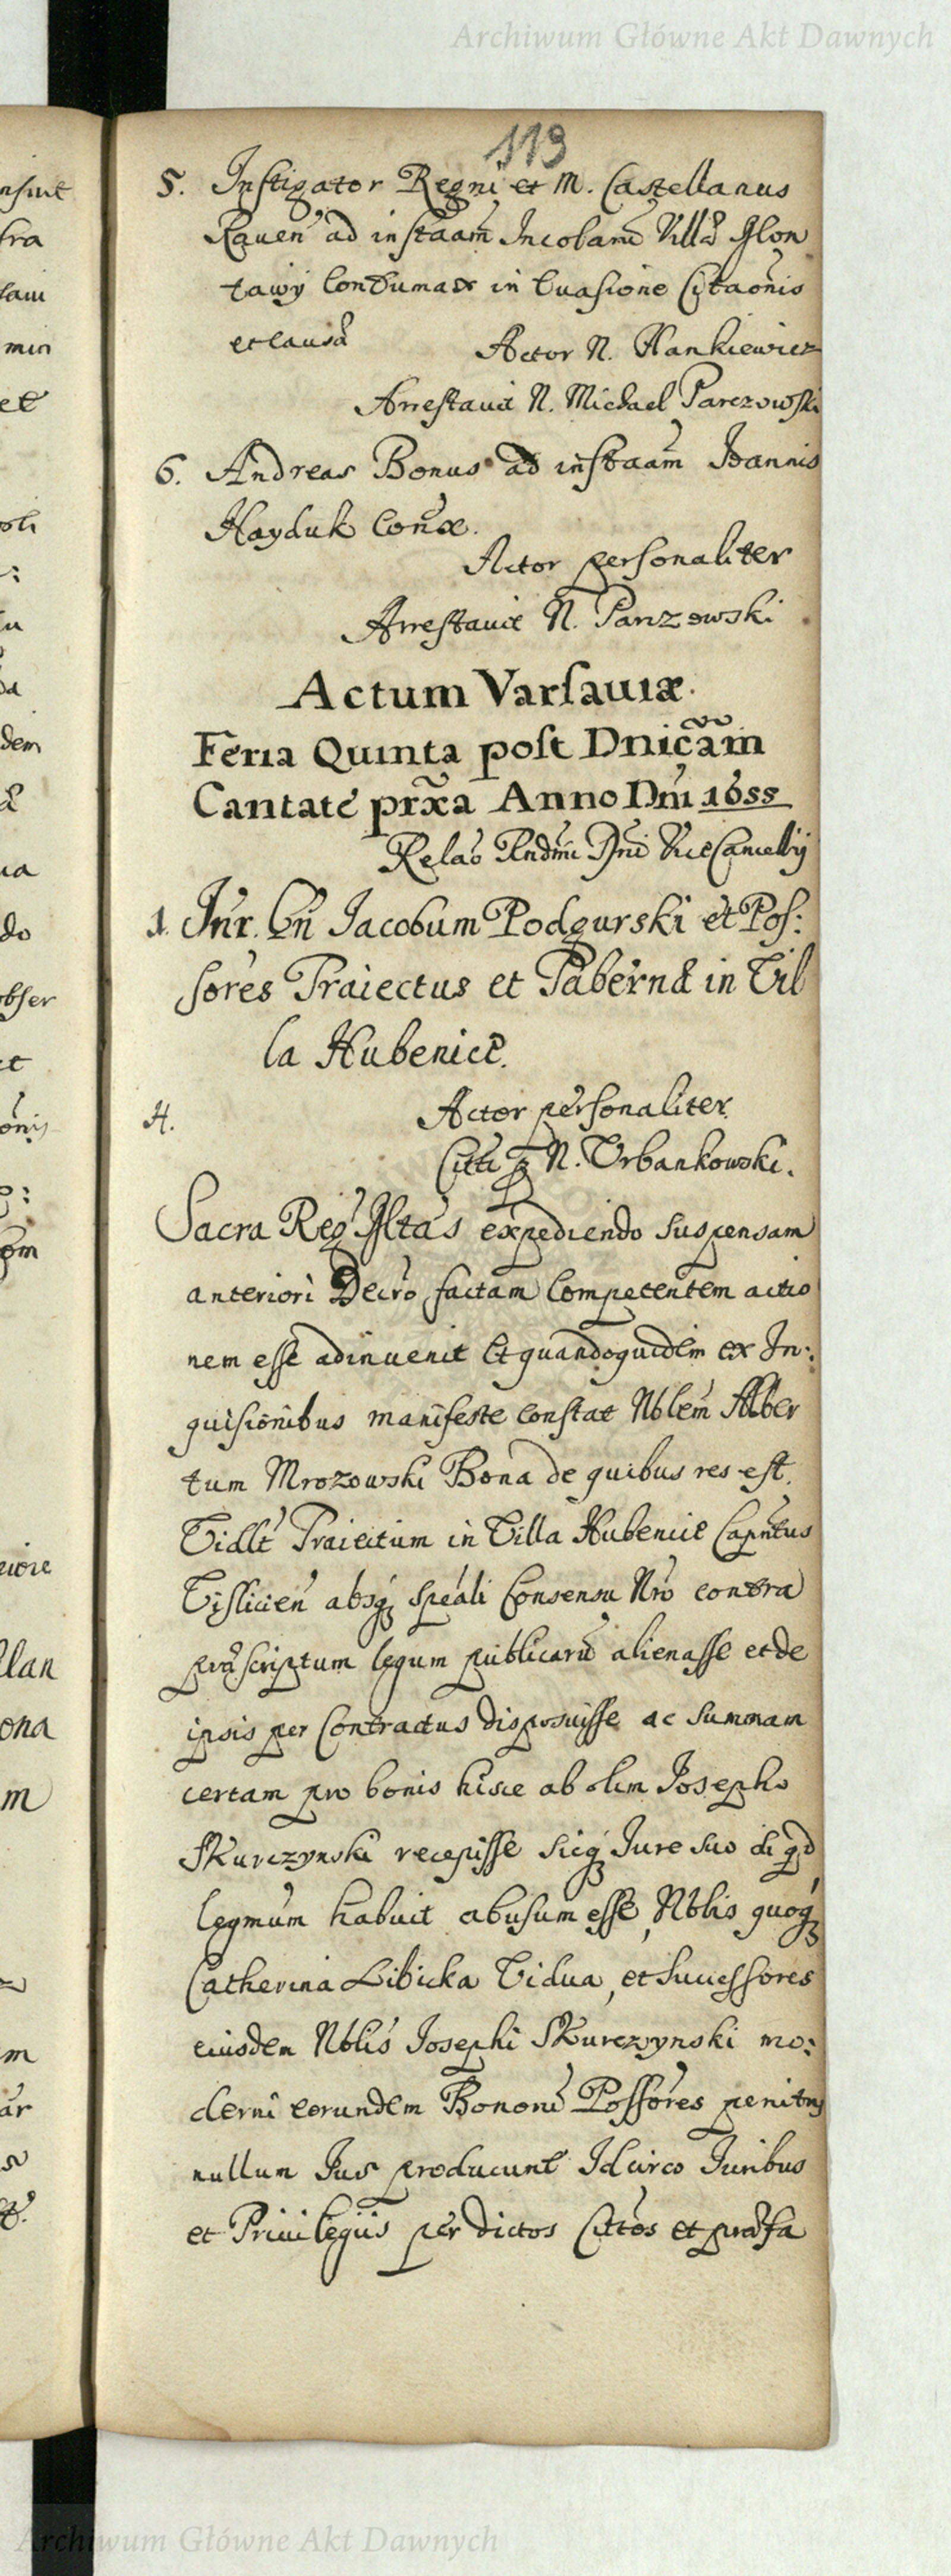 Archiwum Główne Akt Dawnych
113
5. Instigator Regni et M. Castellanus
Raven̄ ad instaam̄ Incolarū Villæ
tawy Contumax in Evasione Citaōnis
et causæ
Actor N. Hankiewicz
Arrestavit N. Michael Parczowski
6. Andreas Bonus ad instaam̄ Joannis
Hayduk Conx.
Actor personaliter
Arrestavit N. Parczowski
Actum Varsaviæ.
Feria Quinta post Dnicam̄
Cantate prxa Anno Dni 1655
Relao Rndmi Dni ViceCancellrij
1. Inr. Gn Jacobum Podgurski et Pos:
sores Traiectus et Tabernæ in Vil
la Hubenice.
Actor personaliter
H.
Citti p N. Urbankowski.
Sacra Reg Mtas expediendo suspensam
anteriori Decro factam Competentem actio
nem esse adinvenit Et quandoquidem ex In:
quisionibus manifeste constat Nblem Alber
tum Mrozowski Bona de quibus res est.
Vidlt Traiectum in Villa Hubenice Capntus
Vislicien absq speali Consensu Nro contra
præscriptum legum publicarū alienasse et de
ipsis per Contractus disposuisse ac summam
certam pro bonis hisce ab olim Josepho
Skurczynski recepisse sicq Jure suo si qd
legmum habuit abusum esse, Nblis quoq
Catherina Libicka Vidua, et Successores
eiusdem Nblis Josephi Skurczynski mo:
derni eorundem Bonorū Possores penitus
nullum Jus producunt Idcirco Juribus
et Privilegiis per dictos Cittos et præfa
Archiwum Główne Akt Dawnych